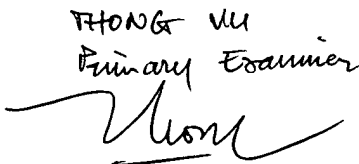 THONG VU
Primary Examiner
Thong